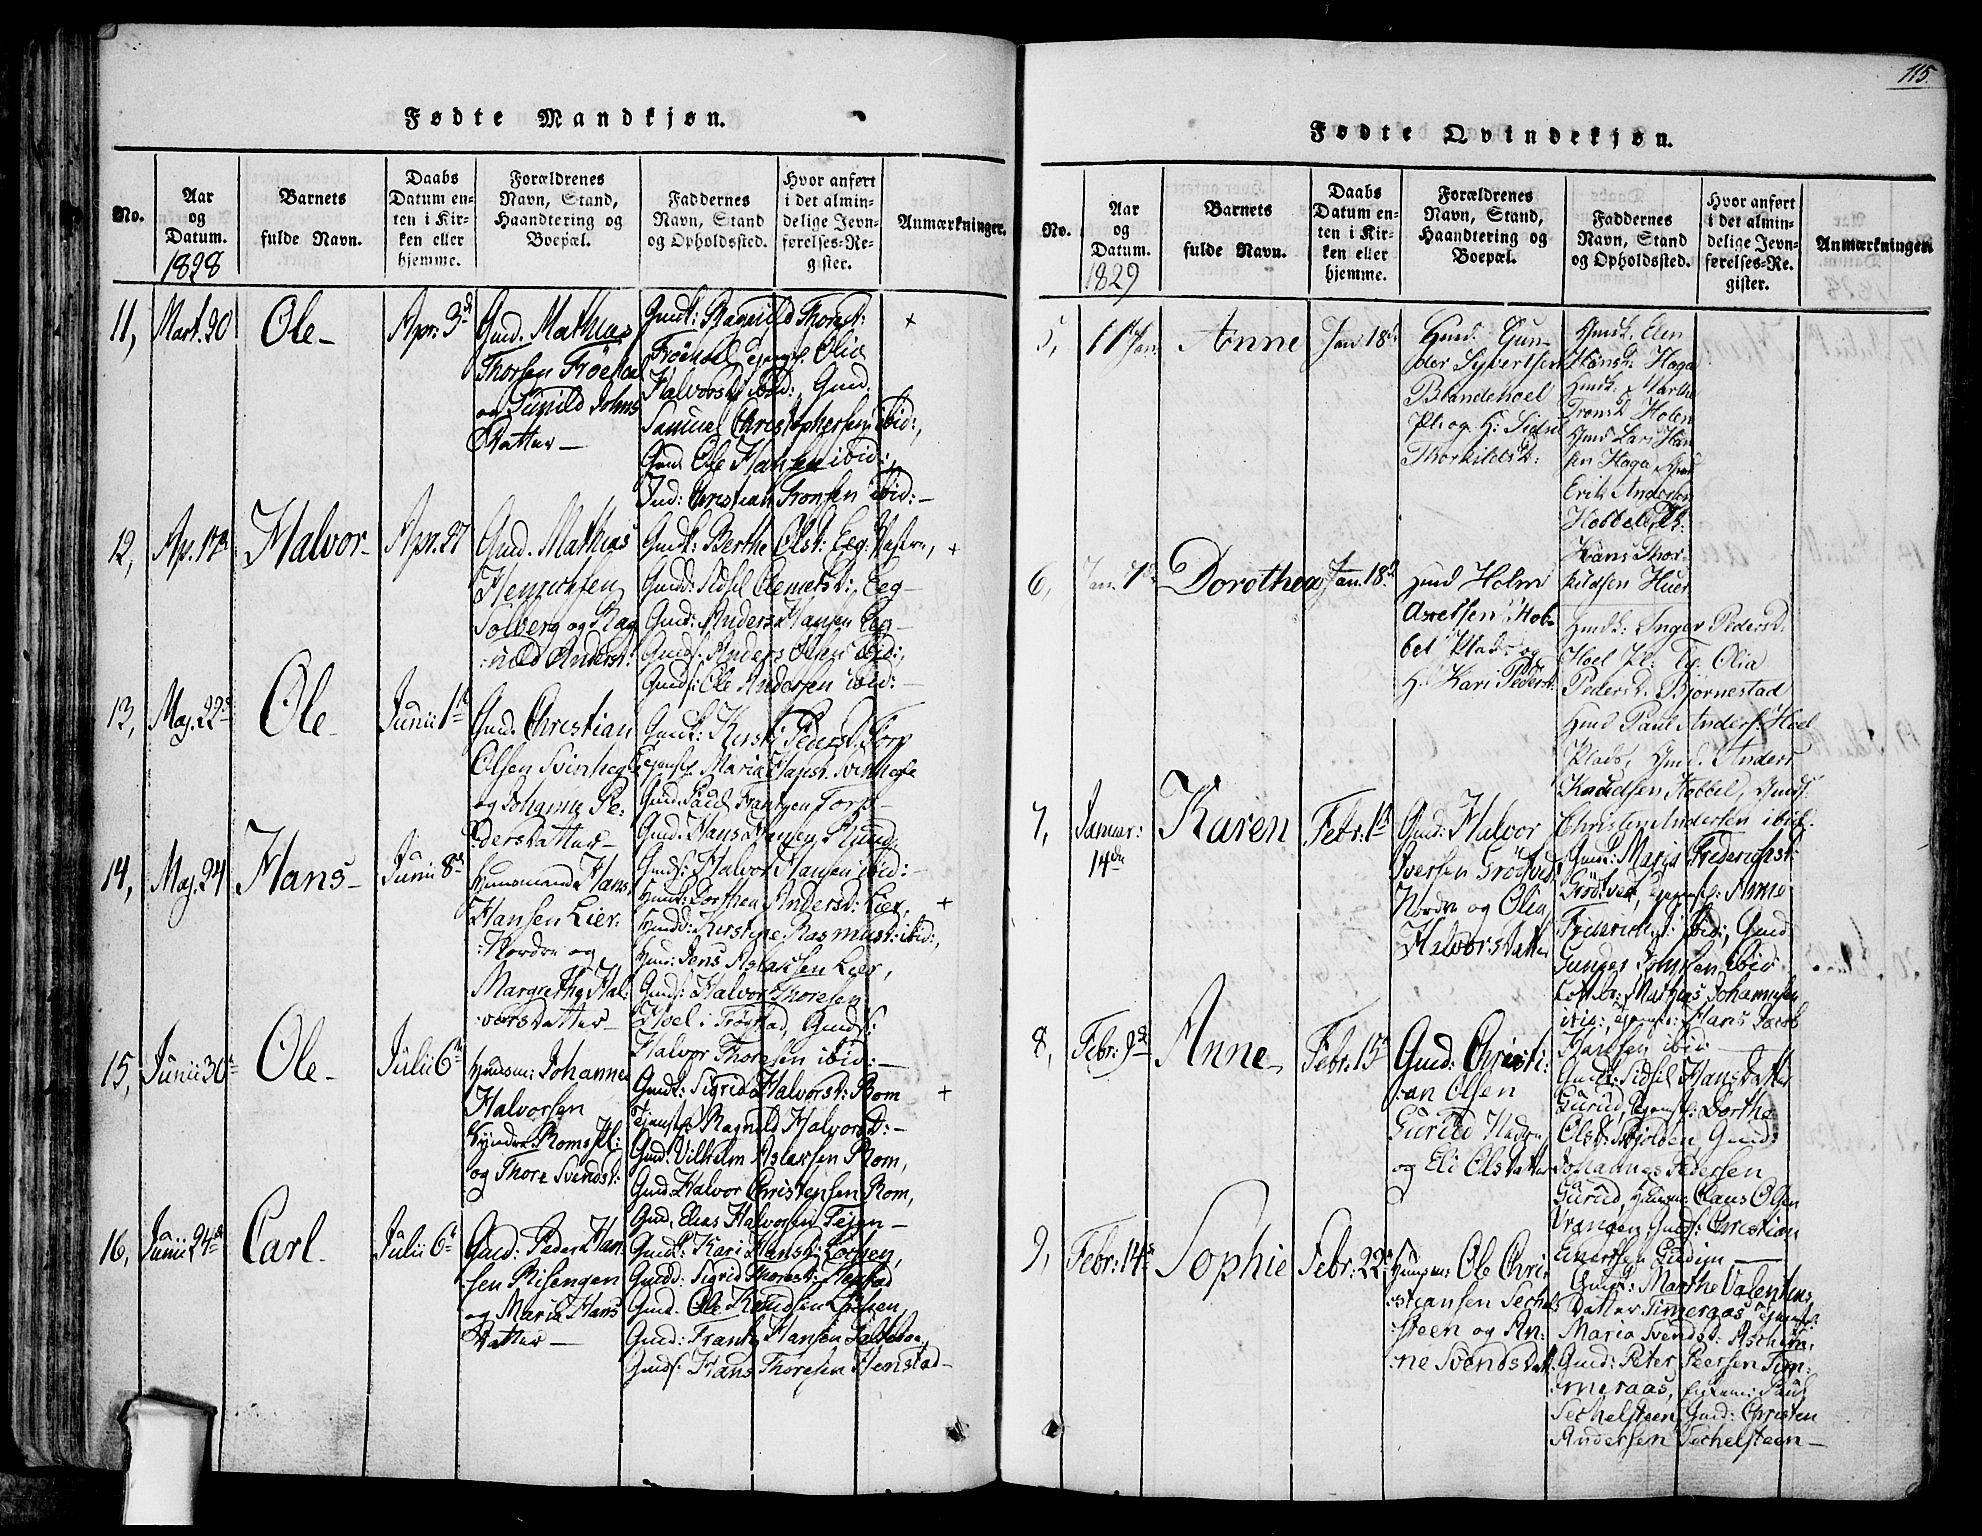 Fødte Mandkjøn.
No.
Aar
og
Datum.
1828
Barnets
fulde Navn.
Daabs
Datum en-
ten i Kir-
ken eller
hjemme.
Forældrenes
Navn, Stand,
Haandtering og
Boepæl.
Faddernes
Navn, Stand
og Opholdssted.
Hvor anført
i det almin-
delige Jevn-
førelses-Re-
gister.
Anmærkninger.
11, Mart. 30
Ole-
Apr: 3d
Gmd. Mathias
Thorsen Fröehoel
og Gunild Johns
Datter-
Gmdk: Ragnild Thorest:
Fröehoel Tjenpf. Olia
Halvorsd: ibid: Gmd.
Samuel Christophersen ibid:,
Gmd Ole Hansen ibid:,
Ind: Christian Tronsen ibid:-
+
12, Ap. 17d
Halvor-
Apr. 27
Gmd. Mathias
Henrichsen
Solberg og Rag
:nild Anderst:
Gmdk: Berthe Olst: Eeg:
Gmdd: Sidsel Clemetst: Eeg-
Gmd: Anders Hansen Eeg-
Gmds: Anders Olsen ibid:,
Gmds: Ole Andersen ibid:-
+
13, Maj. 22d
Ole-
Junii 1te
Gmd. Christian
Olsen Svinhegle
og Johanne Pe-
dersdatter-
Gmdk: Kirsti Pederst: Torp
Tjenpf. Maria Hanst. Svinhegle
Gmd. Poul Frantzen Torp-
Gmd. Hans Hansen
Gmds: Halvor Hansen ibid:-
14, Maj. 24
Hans-
Junii 8de
Huusmand Hans
Hansen Lier
:Nordre og
Margrethe Hal:
:vorsdatter-
Hmdk: Dorthea Anderst: Lier,
Hmdd: Kirstine Rasmust: ibid:,
Hmd: Jens Aslaksen Lier,
Gmds: Halvor Thoresen
Hoel i Trögstad, Gmds:
Halvor Thoresen ibid:-
+
15, Junii 30te
Ole-
Julii 6te
Huusm: Johannes
Halvorsen
Syndre Roms Pl:
og Thore Svendst:
Gmdk: Sigrid Halvorst: Rom
Tjenpf: Ragnild Halvors D:-
Gmd: Vilhelm Aslaksen Rom,
Gmd: Halvor Christensen Rom,
Gmd. Elias Halvorsen
+
16, Junii 24de
Carl-
Julii 6te
Gmd: Peder Han
sen Risengen
og Marie Hans
Datter-
Gmdk: Kari Hanst: Löchen,
Gmdd: Sigrid Thorest: Henstad
Gmd. Ole Knudsen Löchen,
Gmd: Frantz Hansen
Gmds: Frans Thoresen Henstad-
115.
Fødte Qvindekjøn.
No.
Aar
og
Datum.
1829
Barnets
fulde Navn.
Daabs
Datum en-
ten i Kir-
ken eller
hjemme.
Forældrenes
Navn, Stand,
Haandtering og
Boepæl.
Faddernes
Navn, Stand
og Opholdssted.
Hvor anført
i det almin-
delige Jevn-
førelses-Re-
gister.
Anmærkninger
5, 11te Jan:
Anne
Jan: 18de
Hmd: Gun-
der Syvertsen
Blandehoel
Pl: og H: Sidsel
Thorkildsd:
Hmdk: Elen
Hansd: Haga
Hmdk: Marthe
Tronsd: Holen
Hmd Lars Han
sen Haga, Hmd
Erik Andersen
Hobbel, Ts:
Hans Thor-
kildsen Huer
6, Jan. 1ste
Dorothea
Jan. 18de
Hmd Holm
Axelsen Hob-
bel Plads og
H: Kari Pedersd:
Hmdk: Inger Pedersd.
Hoel Pl: Tj: Olia
Pedersd: Bjornestad
Hmd Paul Anders: Hoel
Plads, Hmd: Anders
Knudsen Hobbel, Hmds.
Christen Andersen ibid.
7, Januar:
14de
Karen
Febr: 1ste
Gmd: Halvor
Iversen Grödtved
Nordre og Olia
Halvorsdatter
Gmdk: Maria Frederichst:
Grödtved, Tjenpf: Anne
Friderichst: ibid:, Gmd
Gunder Johnsen ibid
Mathias Johannesen
ibid:, Hans Jacob
Hansen ibid-
8, Febr: 9de
Anne-
Febr: 15de
Gmd: Christi:
:an Olsen
Gurud Nedre,
og Eli Olsdatter
Gmdk: Sidsel Hansdatter
Gurud, Tjenpf: Dorthe
Olst: Skjolden, Gmd:
Johannes Pedersen
Gurud, Claus Olsen
Vrangen, Gmds: Christian
Einersen Gudim-
9, Febr: 14de
Sophie
Febr: 22de
Huusm: Ole Chri-
:stiansen Sechel
:steen og An:
:ne Svendsdatter
Gmdk: Marthe Valentins
Datter Timeraas Tjenpf:
Maria Svendst: Aschim,
Gmd: Peter Peersen Tim-
meraas, Poul
Sechelsteen, Gmd: Christen
Andersen Sechelsteen-